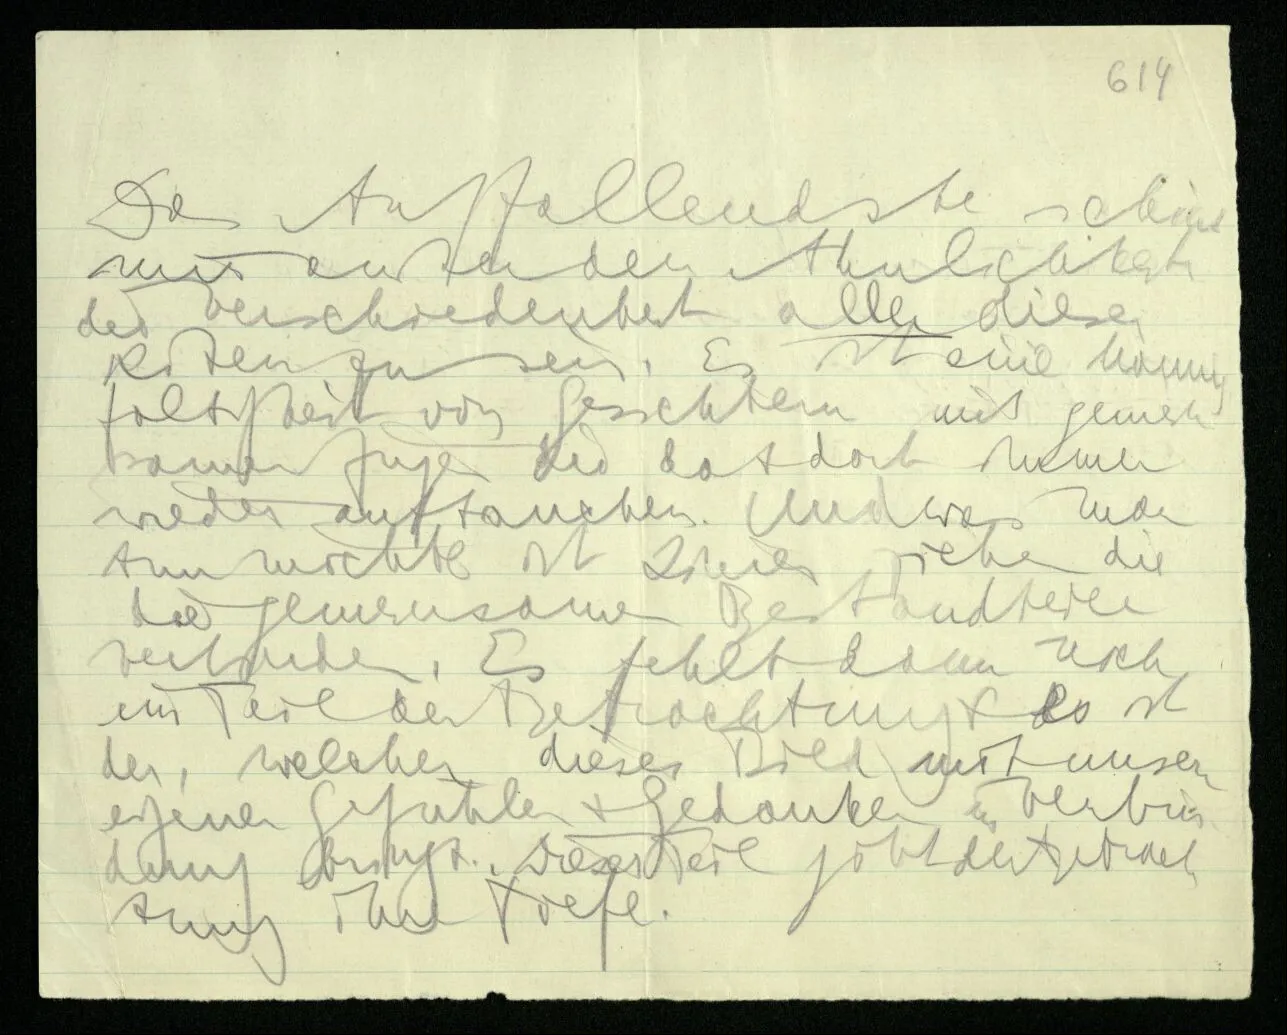 614
Das Auffallendste schiene
mir außer den Ähnlichkeiten
die Verschiedenheit aller dieser
Riten zu sein. Es ist eine Mannig
faltigkeit von Gesichtern mit gemein
samen Zügen die da + dort immer
wieder auftauchen. Und was man
tun möchte ist Linien ziehen die
die gemeinsamen Bestandteile
verbinden. Es fehlt dann noch
ein Teil der Betrachtung + es ist
der, welcher dieses Bild mit unsern
eigenen Gefühlen + Gedanken in Verbin
dung bringt. Dieser Teil gibt der Betrach
tung ihre Tiefe.